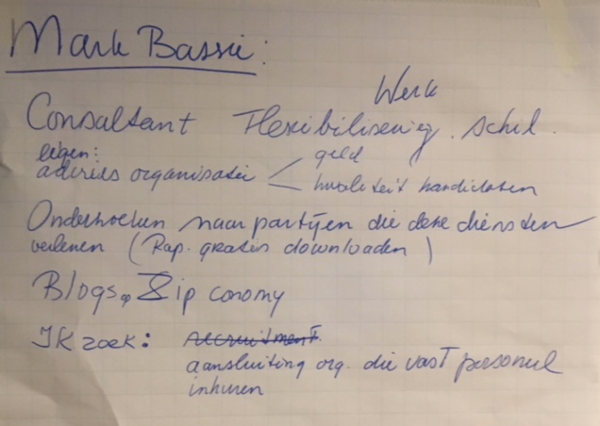 Mark Bassie:
Werk
Consultant Flexibilisering. schil.
eigen:
advies organisatie
geld
kwaliteit kandidaten
Onderzoeken naar partijen die deze diensten
verlenen (Rap. gratis downloaden)
Blogs op Zipconomy
Ik zoek: recruitment.
aansluiting org. die vast personeel
inhuren